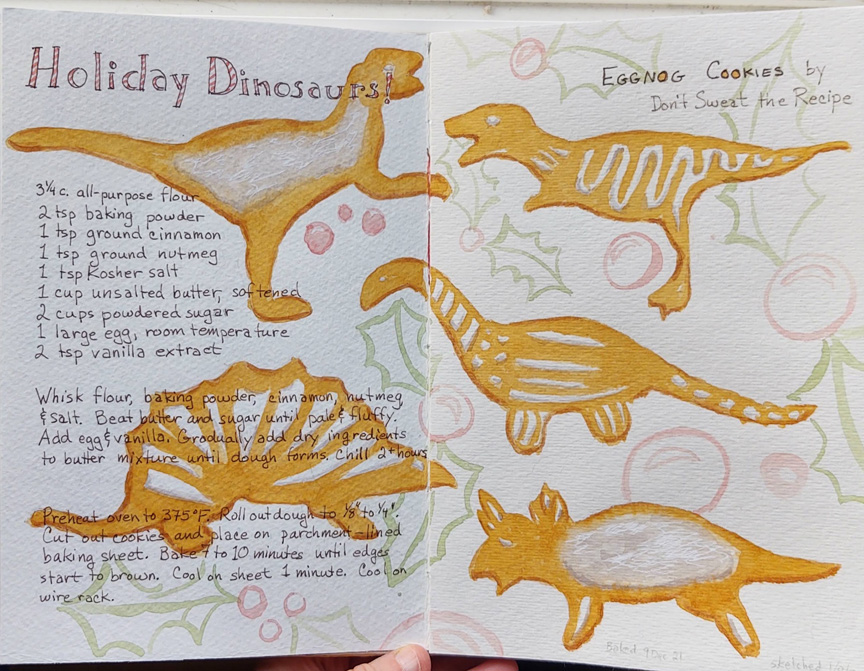 Holiday Dinosaurs!
3¼ c. all-purpose flour
2 tsp baking powder
1 tsp ground cinnamon
1 tsp ground nutmeg
1 tsp Kosher salt
1 cup unsalted butter, softened
2 cups powdered sugar
1 large egg, room temperature
2 tsp vanilla extract
Whisk flour, baking powder, cinnamon, nutmeg
& salt. Beat butter and sugar until pale & fluffy.
Add egg & vanilla. Gradually add dry ingredients
to butter mixture until dough forms. Chill 2+ hours
Preheat oven to 375°F. Roll out dough to ⅛" to ¼".
Cut out cookies and place on parchment-lined
baking sheet. Bake 7 to 10 minutes until edges
start to brown. Cool on sheet 1 minute. Cool on
wire rack.
EGGNOG COOKIES by
Don't Sweat the Recipe
Baked 9 Dec 21
sketched